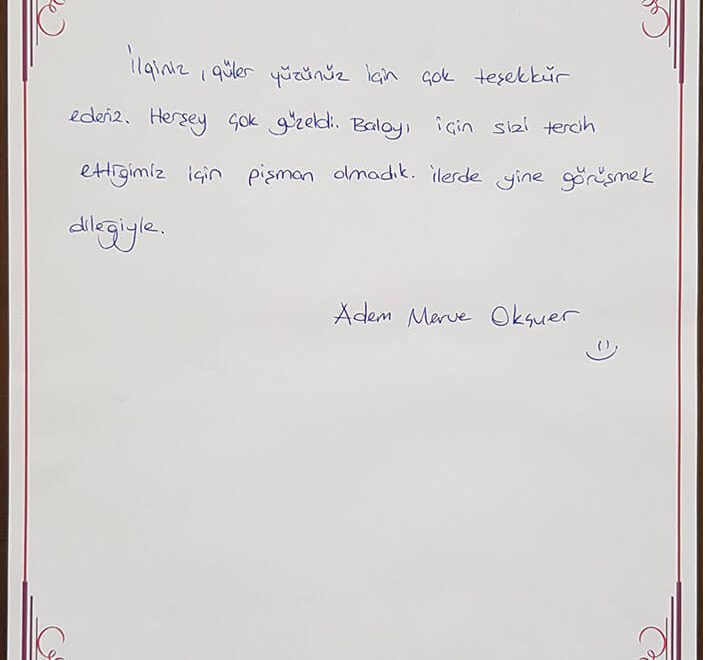 İlginiz, güler yüzünüz için çok teşekkür
ederiz. Herşey çok güzeldi. Balayı için sizi tercih
ettiğimiz için pişman olmadık. ilerde yine görüşmek
dileğiyle.
Adem Merve Okşuer